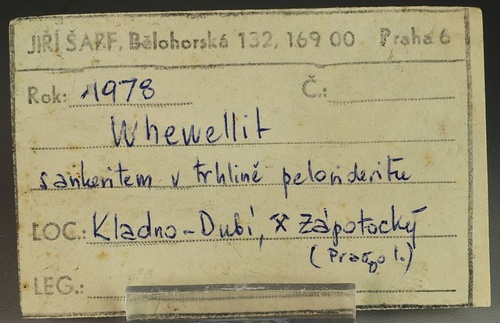 JIŘÍ ŠARF, Bělohorská 132, 169 00 Praha 6
Rok: 1978 Č.:
Whewellit
s ankeritem v trhlině pelosideritu
LOC.: Kladno-Dubí, ⚒ Zápotocký
(Prago I.)
LEG.: